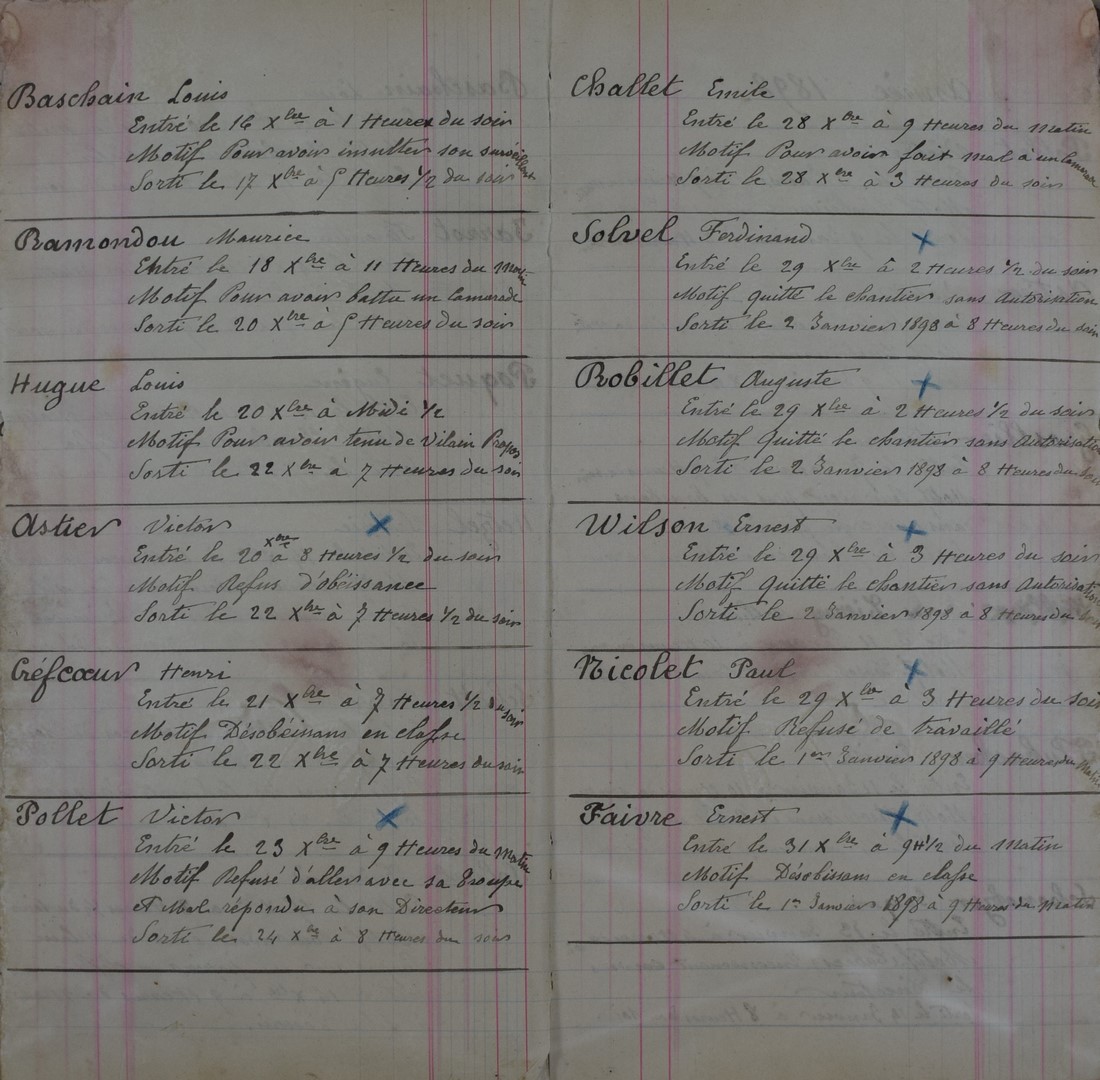 Baschain Louis
Entré le 16 Xbre à 1 Heures du soir
Motif Pour avoir insulter son surveillant
Sorti le 17 Xbre à 5 Heures 1/2 du soir
Ramondou Maurice
Entré le 18 Xbre à 11 Heures du matin
Motif Pour avoir battu un Camarade
Sorti le 20 Xbre à 5 Heures du soir
Hugue Louis
Entré le 20 Xbre à Midi 1/2
Motif Pour avoir tenu de Vilain Propos
Sorti le 22 Xbre à 7 Heures du soir
Astier Victor
Entré le 20 Xbre à 8 Heures 1/2 du soir
Motif Refus d'obéissance
Sorti le 22 Xbre à 7 Heures 1/2 du soir
Créfcœur Henri
Entré le 21 Xbre à 7 Heures 1/2 du soir
Motif Désobéissans en classe
Sorti le 22 Xbre à 7 Heures du soir
Pollet Victor
Entré le 23 Xbre à 9 Heures du Matin
Motif Refusé d'aller avec sa Troupe
et Mal répondu à son Directeur
Sorti le 24 Xbre à 8 Heures du soir
Challet Emile
Entré le 28 Xbre à 9 Heures du Matin
Motif Pour avoir fait mal à un Camarade
Sorti le 28 Xbre à 3 Heures du soir
Solvel Ferdinand
Entré le 29 Xbre à 2 Heures 1/2 du soir
Motif quitté le chantier sans Autorisation
Sorti le 2 Janvier 1898 à 8 Heures du soir
Robillet Auguste
Entré le 29 Xbre à 2 Heures 1/2 du soir
Motif Quitté le chantier sans Autorisation
Sorti le 2 Janvier 1898 à 8 Heures du soir
Wilson Ernest
Entré le 29 Xbre à 3 Heures du soir
Motif Quitté le chantier sans Autorisation
Sorti le 2 Janvier 1898 à 8 Heures du soir
Nicolet Paul
Entré le 29 Xbre à 3 Heures du soir
Motif Refusé de travaillé
Sorti le 1er Janvier 1898 à 9 Heures du Matin
Faivre Ernest
Entré le 31 Xbre à 9H1/2 du Matin
Motif Désobéissans en classe
Sorti le 1er Janvier 1898 à 9 Heures du Matin